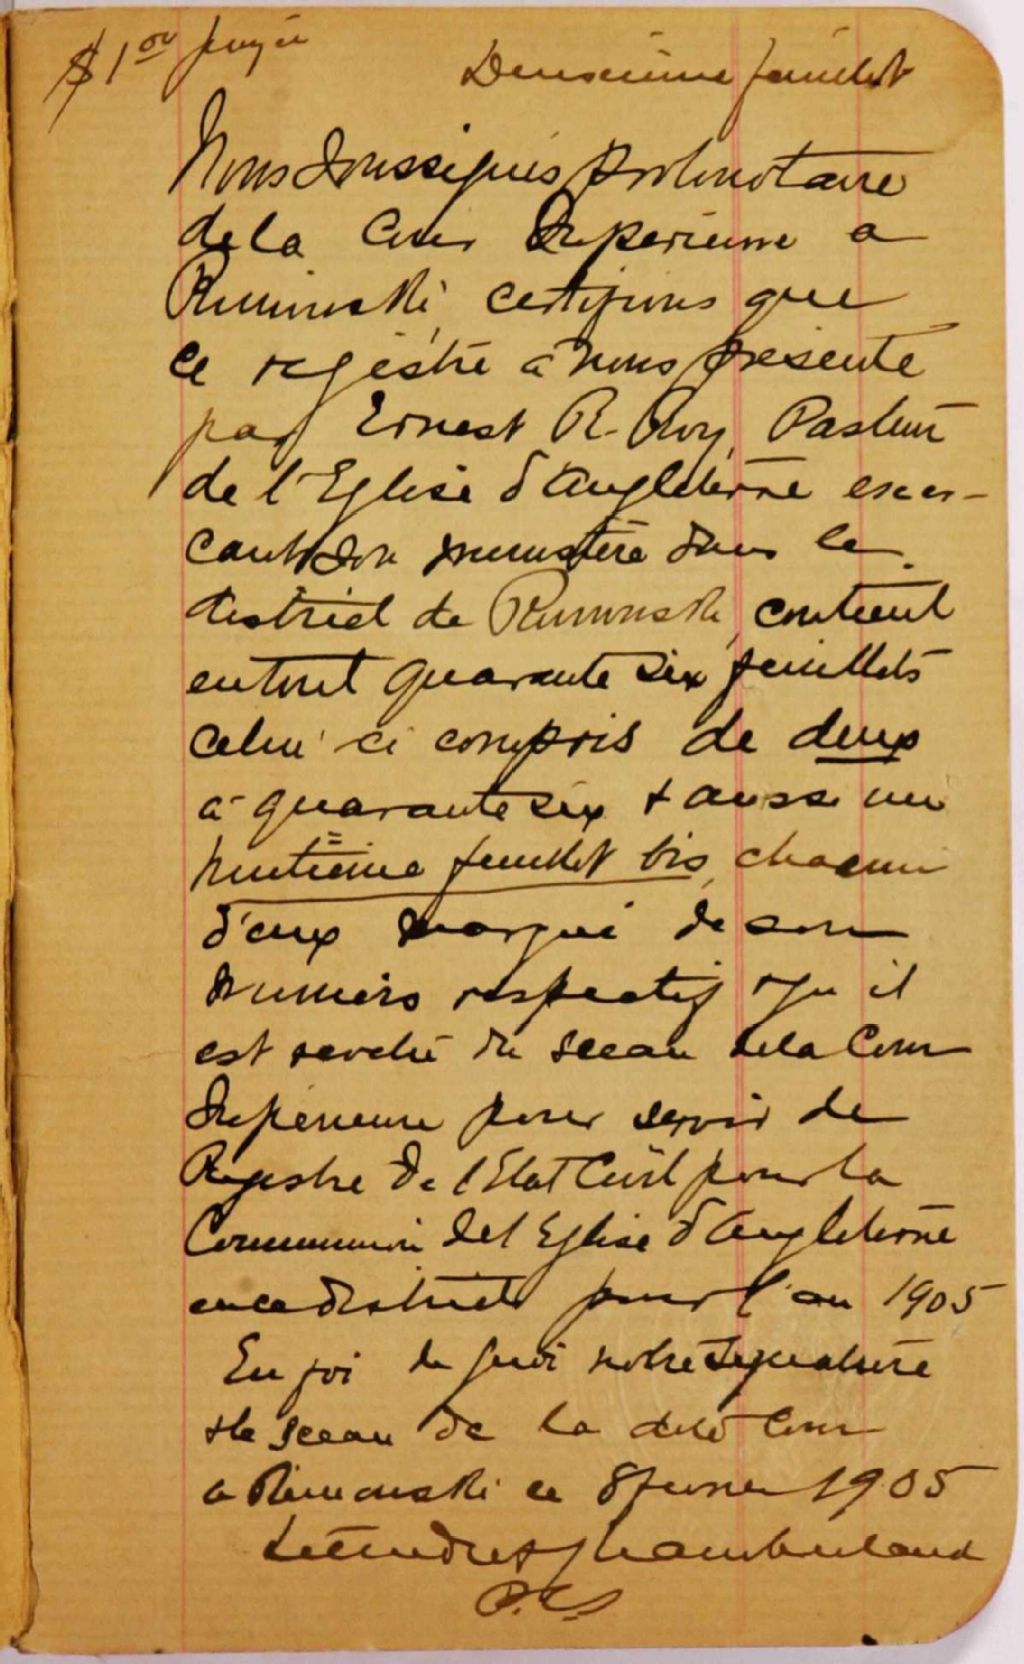 $1.00 payée
Deuxième feuillet
Nous Soussignés protonotaire
de la Cour Supérieure a
Rimouski, certifions que
ce registre à nous présenté
par Ernest R. Roy, Pasteur
de l'Eglise d'Angleterre exer-
cant son ministère dans le
district de Rimouski, contient
en tout quarante six feuillets
celui ci compris de deux
à quarante six & aussi un
huitième feuillet bis, chacun
d'eux marqué de son
numéro respectif & qu'il
est revêtu du sceau de la Cour
Supérieure pour servir de
Registre de l'Etat Civil pour la
Communion de l'Eglise d'Angleterre
en ce district pour l'an 1905
En foi de quoi notre signature
& le sceau de la dite Cour
a Rimouski ce 8 fevrier 1905
Letendre & Chamberland
P.C.S